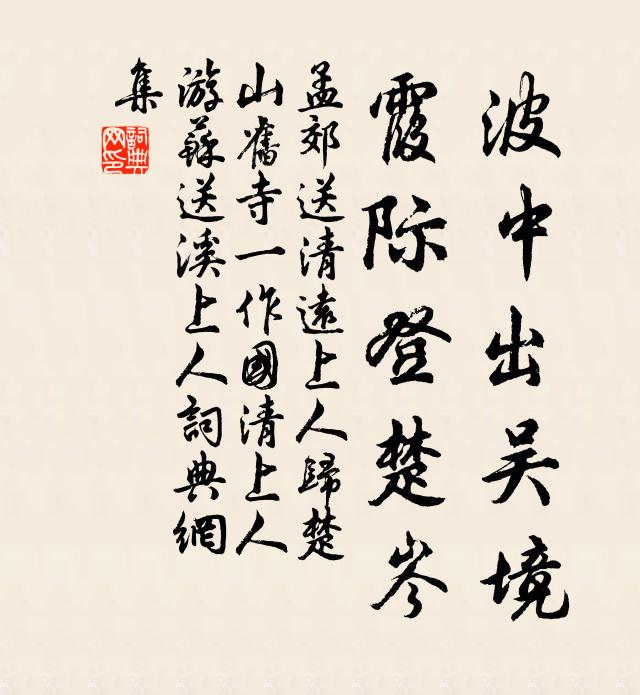 波中出吴境
霞际登楚岑
孟郊送清遠上人歸楚
山舊寺一作國清上人
游蘇送溪上人詞典網
集
詞典
网印